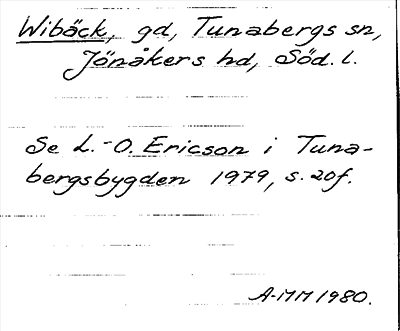 Wibäck, gd, Tunabergs sn,
Jönåkers hd, Söd. l.
Se L.-O. Ericson i Tuna-
bergsbygden 1979, s. 20f.
A-MM 1980.